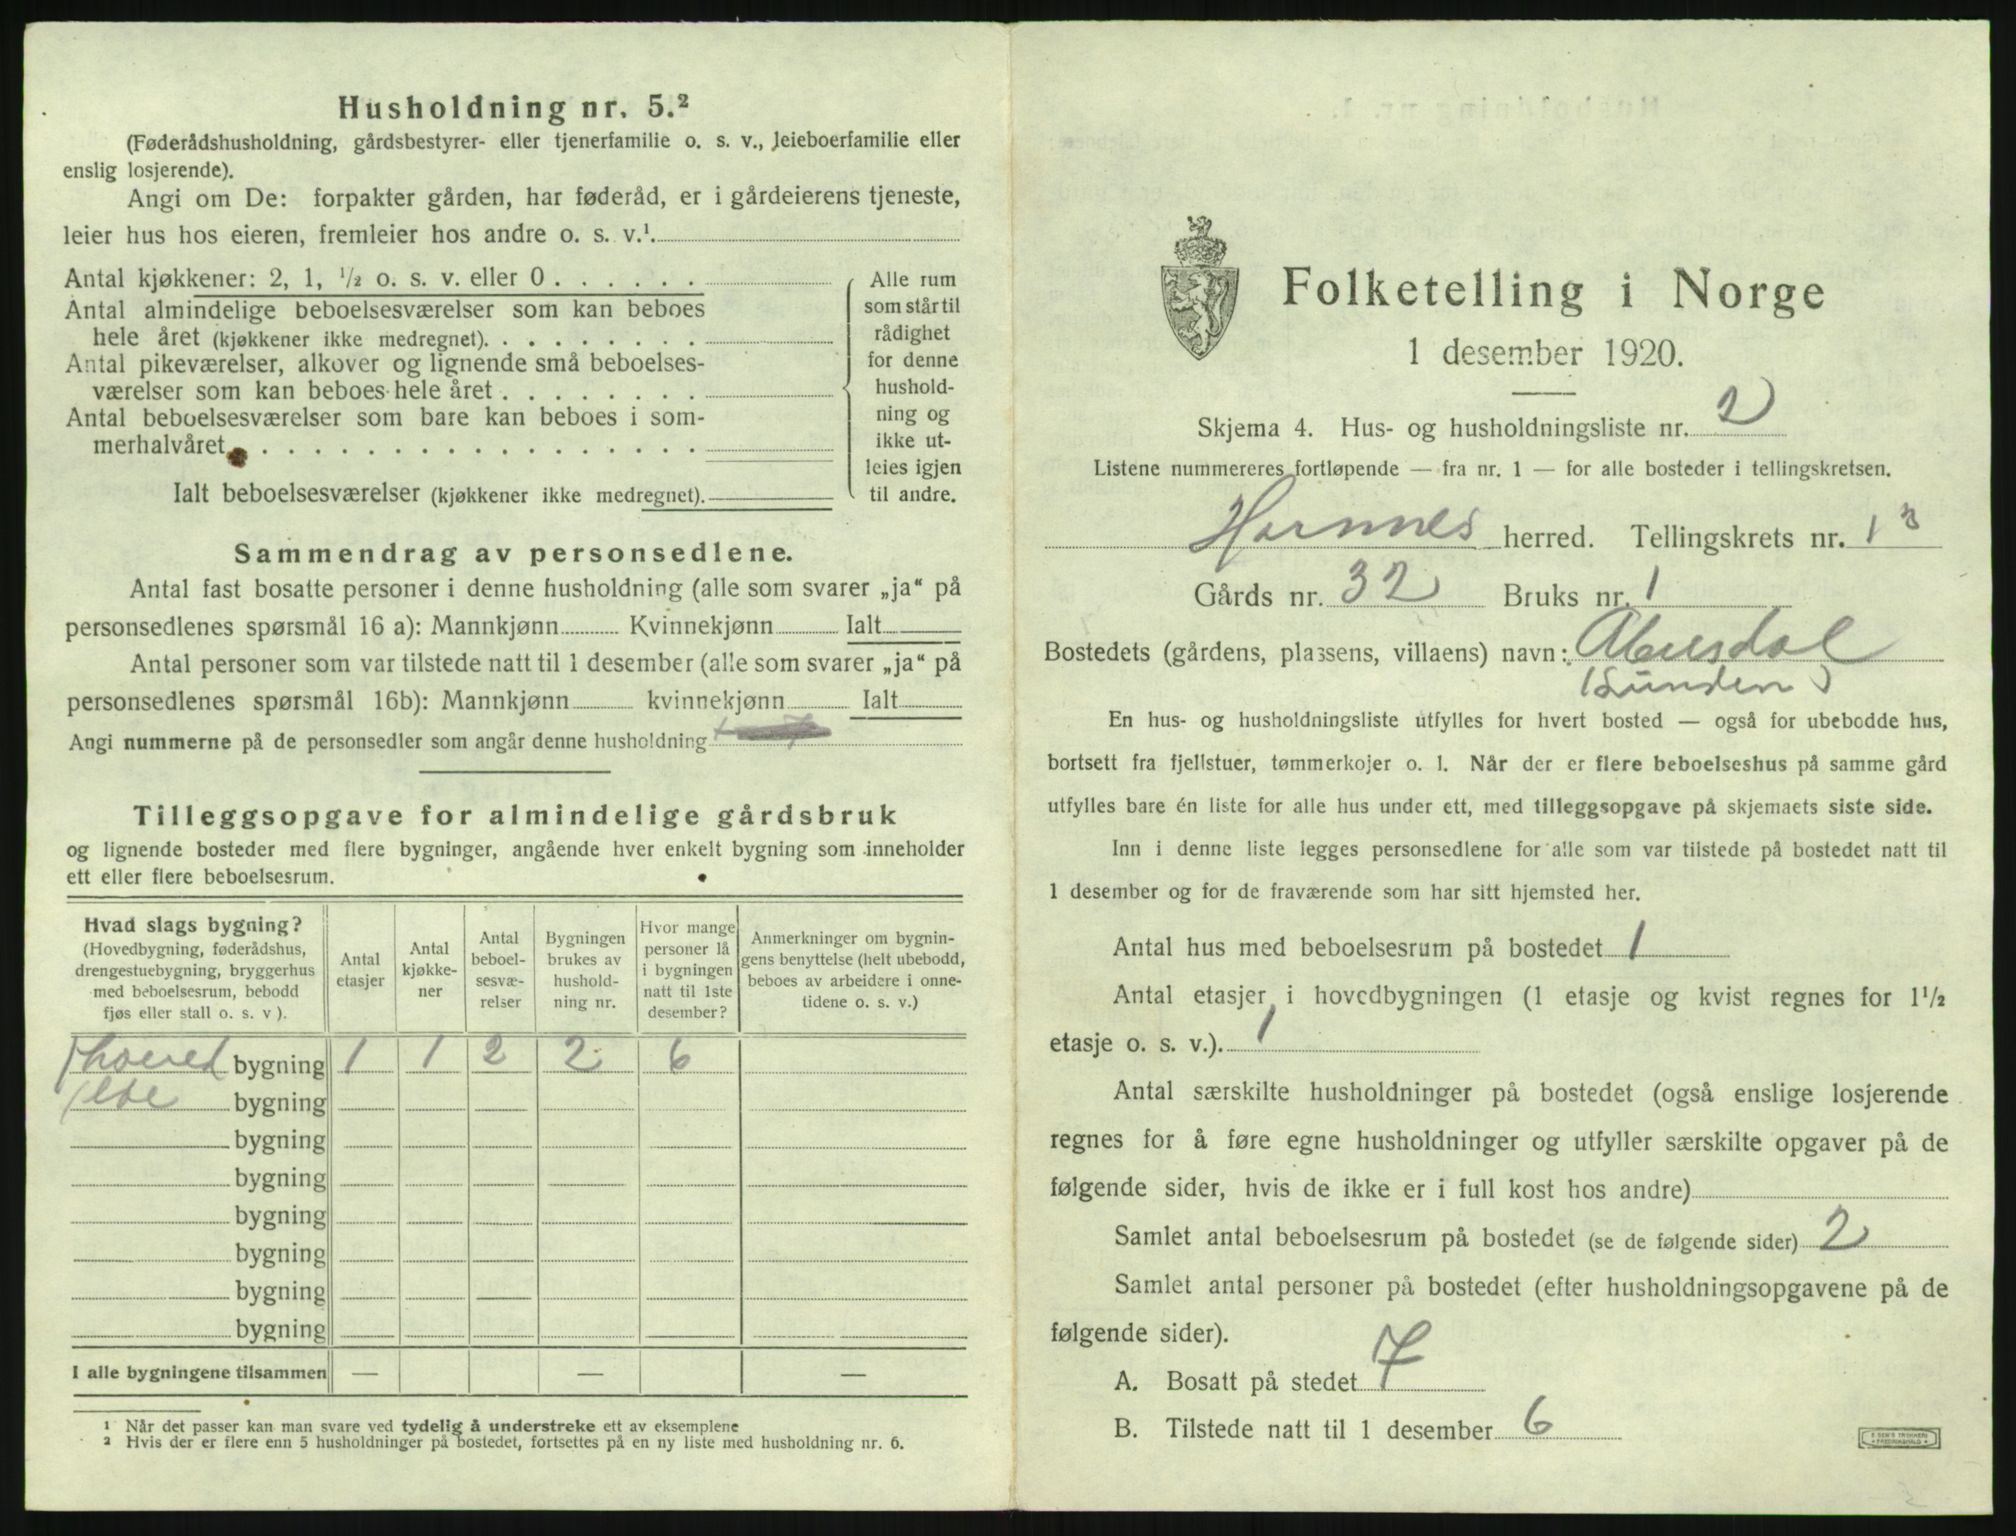 Husholdning nr. 5.²
(Føderådshusholdning, gårdsbestyrer- eller tjenerfamilie o. s. v., leieboerfamilie eller
enslig losjerende).
Angi om De: forpakter gården, har føderåd, er i gårdeierens tjeneste,
leier hus hos eieren, fremleier hos andre o. s. v.¹.
Antal kjøkkener: 2, 1, ½ o. s. v. eller 0 . . . . . .
Antal almindelige beboelsesværelser som kan beboes
hele året (kjøkkener ikke medregnet). . . . . . . . .
Antal pikeværelser, alkover og lignende små beboelses-
værelser som kan beboes hele året . . . . . . . .
Antal beboelsesværelser som bare kan beboes i som-
merhalvåret . . . . . . . . . . . . . . . . .
Ialt beboelsesværelser (kjøkkener ikke medregnet).
Alle rum
som står til
rådighet
for denne
hushold-
ning og
ikke ut-
leies igjen
til andre.
Sammendrag av personsedlene.
Antal fast bosatte personer i denne husholdning (alle som svarer „ja“ på
personsedlenes spørsmål 16 a): Mannkjønn Kvinnekjønn Ialt
Antal personer som var tilstede natt til 1 desember (alle som svarer „ja“ på
personsedlenes spørsmål 16b): Mannkjønn kvinnekjønn Ialt
Angi nummerne på de personsedler som angår denne husholdning
Tilleggsopgave for almindelige gårdsbruk
og lignende bosteder med flere bygninger, angående hver enkelt bygning som inneholder
ett eller flere beboelsesrum.
Hvad slags bygning?
(Hovedbygning, føderådshus,
drengestuebygning, bryggerhus
med beboelsesrum, bebodd
fjøs eller stall o. s. v ).
Antal
etasjer
Antal
kjøkke-
ner
Antal
beboel-
sesvæ-
relser
Bygningen
brukes av
hushold-
ning nr.
Hvor mange
personer lå
i bygningen
natt til 1ste
desember?
Anmerkninger om bygnin-
gens benyttelse (helt ubebodd,
beboes av arbeidere i onne-
tidene o. s. v.)
hoved bygning 1 1 2 2 6
bygning
bygning
bygning
bygning
bygning
bygning
bygning
I alle bygningene tilsammen — — —
¹ Når det passer kan man svare ved tydelig å understreke ett av eksemplene
² Hvis der er flere enn 5 husholdninger på bostedet, fortsettes på en ny liste med husholdning nr. 6.
Folketelling i Norge
1 desember 1920.
Skjema 4. Hus- og husholdningsliste nr. 2
Listene nummereres fortløpende — fra nr. 1 — for alle bosteder i tellingskretsen.
Hornnes herred. Tellingskrets nr. 13
Gårds nr. 32 Bruks nr. 1
Bostedets (gårdens, plassens, villaens) navn: Abusdal
(Lunden)
En hus- og husholdningsliste utfylles for hvert bosted — også for ubebodde hus,
bortsett fra fjellstuer, tømmerkojer o. l. Når der er flere beboelseshus på samme gård
utfylles bare én liste for alle hus under ett, med tilleggsopgave på skjemaets siste side.
Inn i denne liste legges personsedlene for alle som var tilstede på bostedet natt til
1 desember og for de fraværende som har sitt hjemsted her.
Antal hus med beboelsesrum på bostedet 1
Antal etasjer i hovedbygningen (1 etasje og kvist regnes for 1½
etasje o. s. v.). 1
Antal særskilte husholdninger på bostedet (også enslige losjerende
regnes for å føre egne husholdninger og utfyller særskilte opgaver på de
følgende sider, hvis de ikke er i full kost hos andre)
Samlet antal beboelsesrum på bostedet (se de følgende sider) 2
Samlet antal personer på bostedet (efter husholdningsopgavene på de
følgende sider).
A. Bosatt på stedet 7
B. Tilstede natt til 1 desember 6